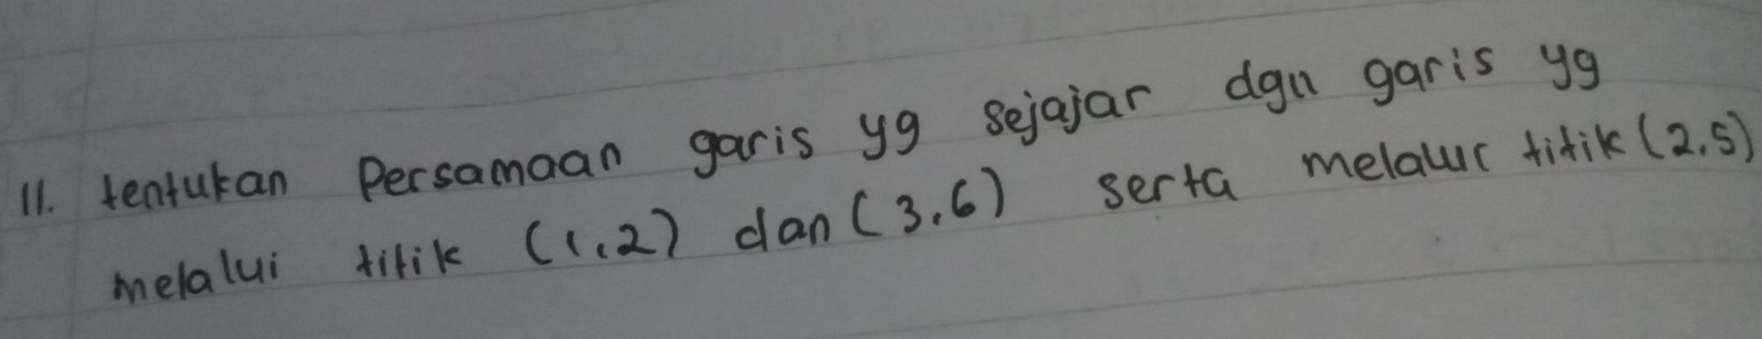 11. tentukan Persamaan garis yg sejajar dgn garis yg
melalui titik (1,2) dan (3,6) serta melalui titik (2,5)